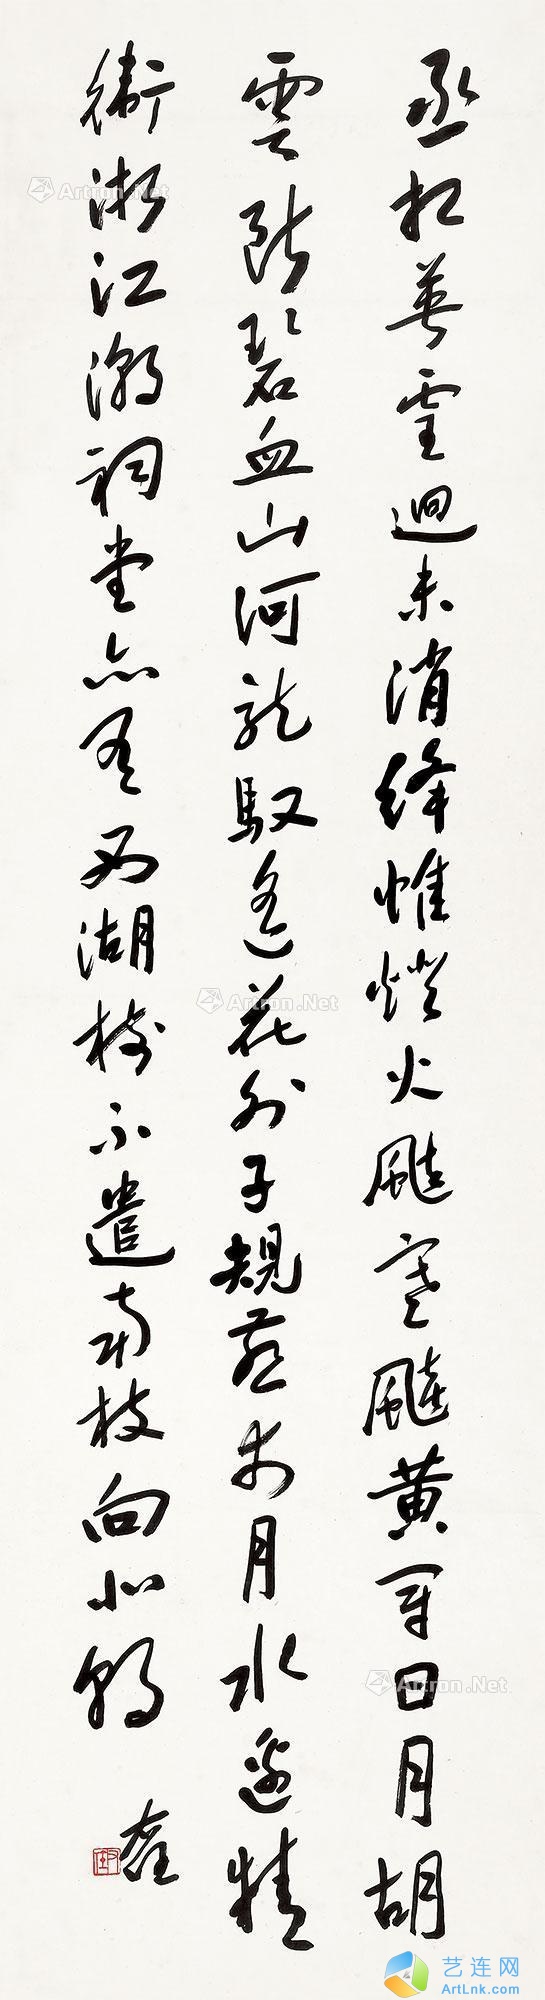 丞相英靈迥未消絳帷燈火颯寒飈黃冠日月胡
雲斷碧血山河龍馭遙花外子規燕市月水邊精
衛浙江潮祠堂亦有西湖樹不遣南枝向北朝
Artron.Net
Artron.Net
Artron.Net
艺连网
ArtLnk.com